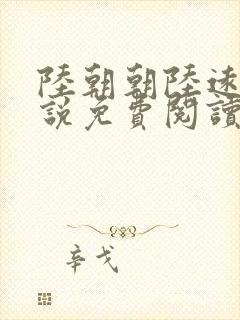 陸朝朝陸遠
說免費閱讀
辛戈